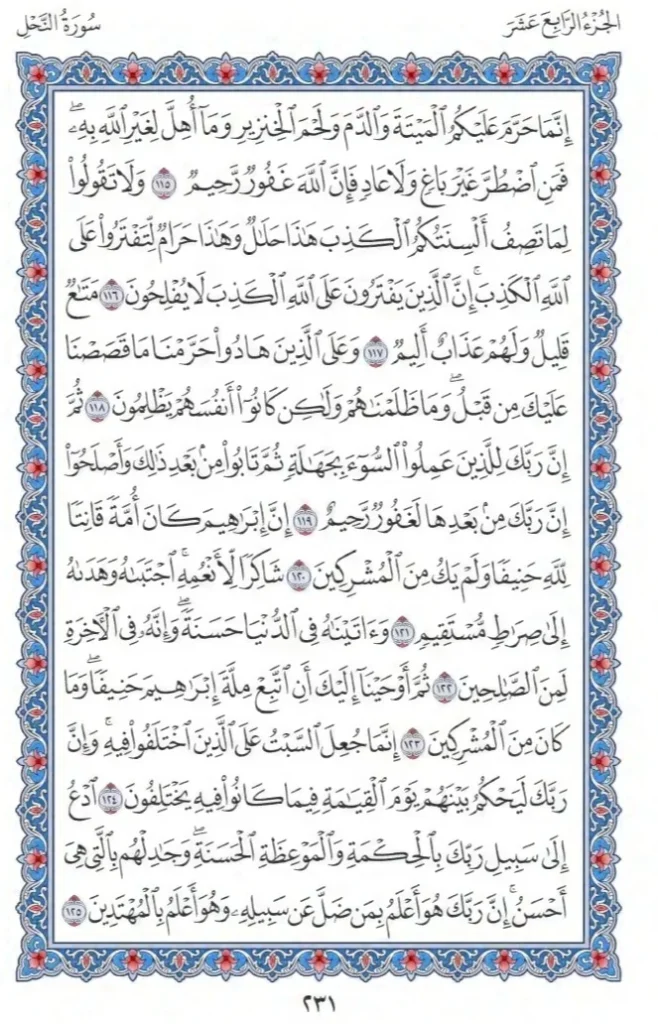 الجزء الرابع عشر
سورة النحل
إِنَّمَا حَرَّمَ عَلَيْكُمُ ٱلْمَيْتَةَ وَٱلدَّمَ وَلَحْمَ ٱلْخِنزِيرِ وَمَآ أُهِلَّ لِغَيْرِ ٱللَّهِ بِهِۦۖ
فَمَنِ ٱضْطُرَّ غَيْرَ بَاغٍ وَلَا عَادٍ فَإِنَّ ٱللَّهَ غَفُورٌ رَّحِيمٌ ١١٥ وَلَا تَقُولُوا۟
لِمَا تَصِفُ أَلْسِنَتُكُمُ ٱلْكَذِبَ هَـٰذَا حَلَـٰلٌ وَهَـٰذَا حَرَامٌ لِّتَفْتَرُوا۟ عَلَى
ٱللَّهِ ٱلْكَذِبَۚ إِنَّ ٱلَّذِينَ يَفْتَرُونَ عَلَى ٱللَّهِ ٱلْكَذِبَ لَا يُفْلِحُونَ ١١٦ مَتَـٰعٌ
قَلِيلٌ وَلَهُمْ عَذَابٌ أَلِيمٌ ١١٧ وَعَلَى ٱلَّذِينَ هَادُوا۟ حَرَّمْنَا مَا قَصَصْنَا
عَلَيْكَ مِن قَبْلُۖ وَمَا ظَلَمْنَـٰهُمْ وَلَـٰكِن كَانُوٓا۟ أَنفُسَهُمْ يَظْلِمُونَ ١١٨ ثُمَّ
إِنَّ رَبَّكَ لِلَّذِينَ عَمِلُوا۟ ٱلسُّوٓءَ بِجَهَـٰلَةٍ ثُمَّ تَابُوا۟ مِنۢ بَعْدِ ذَٰلِكَ وَأَصْلَحُوٓا۟
إِنَّ رَبَّكَ مِنۢ بَعْدِهَا لَغَفُورٌ رَّحِيمٌ ١١٩ إِنَّ إِبْرَٰهِيمَ كَانَ أُمَّةً قَانِتًا
لِّلَّهِ حَنِيفًا وَلَمْ يَكُ مِنَ ٱلْمُشْرِكِينَ ١٢٠ شَاكِرًا لِّأَنْعُمِهِۚ ٱجْتَبَىٰهُ وَهَدَىٰهُ
إِلَىٰ صِرَٰطٍ مُّسْتَقِيمٍ ١٢١ وَءَاتَيْنَـٰهُ فِى ٱلدُّنْيَا حَسَنَةًۖ وَإِنَّهُۥ فِى ٱلْـَٔاخِرَةِ
لَمِنَ ٱلصَّـٰلِحِينَ ١٢٢ ثُمَّ أَوْحَيْنَآ إِلَيْكَ أَنِ ٱتَّبِعْ مِلَّةَ إِبْرَٰهِيمَ حَنِيفًاۖ وَمَا
كَانَ مِنَ ٱلْمُشْرِكِينَ ١٢٣ إِنَّمَا جُعِلَ ٱلسَّبْتُ عَلَى ٱلَّذِينَ ٱخْتَلَفُوا۟ فِيهِۚ وَإِنَّ
رَبَّكَ لَيَحْكُمُ بَيْنَهُمْ يَوْمَ ٱلْقِيَـٰمَةِ فِيمَا كَانُوا۟ فِيهِ يَخْتَلِفُونَ ١٢٤ ٱدْعُ
إِلَىٰ سَبِيلِ رَبِّكَ بِٱلْحِكْمَةِ وَٱلْمَوْعِظَةِ ٱلْحَسَنَةِۖ وَجَـٰدِلْهُم بِٱلَّتِى هِىَ
أَحْسَنُۚ إِنَّ رَبَّكَ هُوَ أَعْلَمُ بِمَن ضَلَّ عَن سَبِيلِهِۦۖ وَهُوَ أَعْلَمُ بِٱلْمُهْتَدِينَ ١٢٥
٢٣١